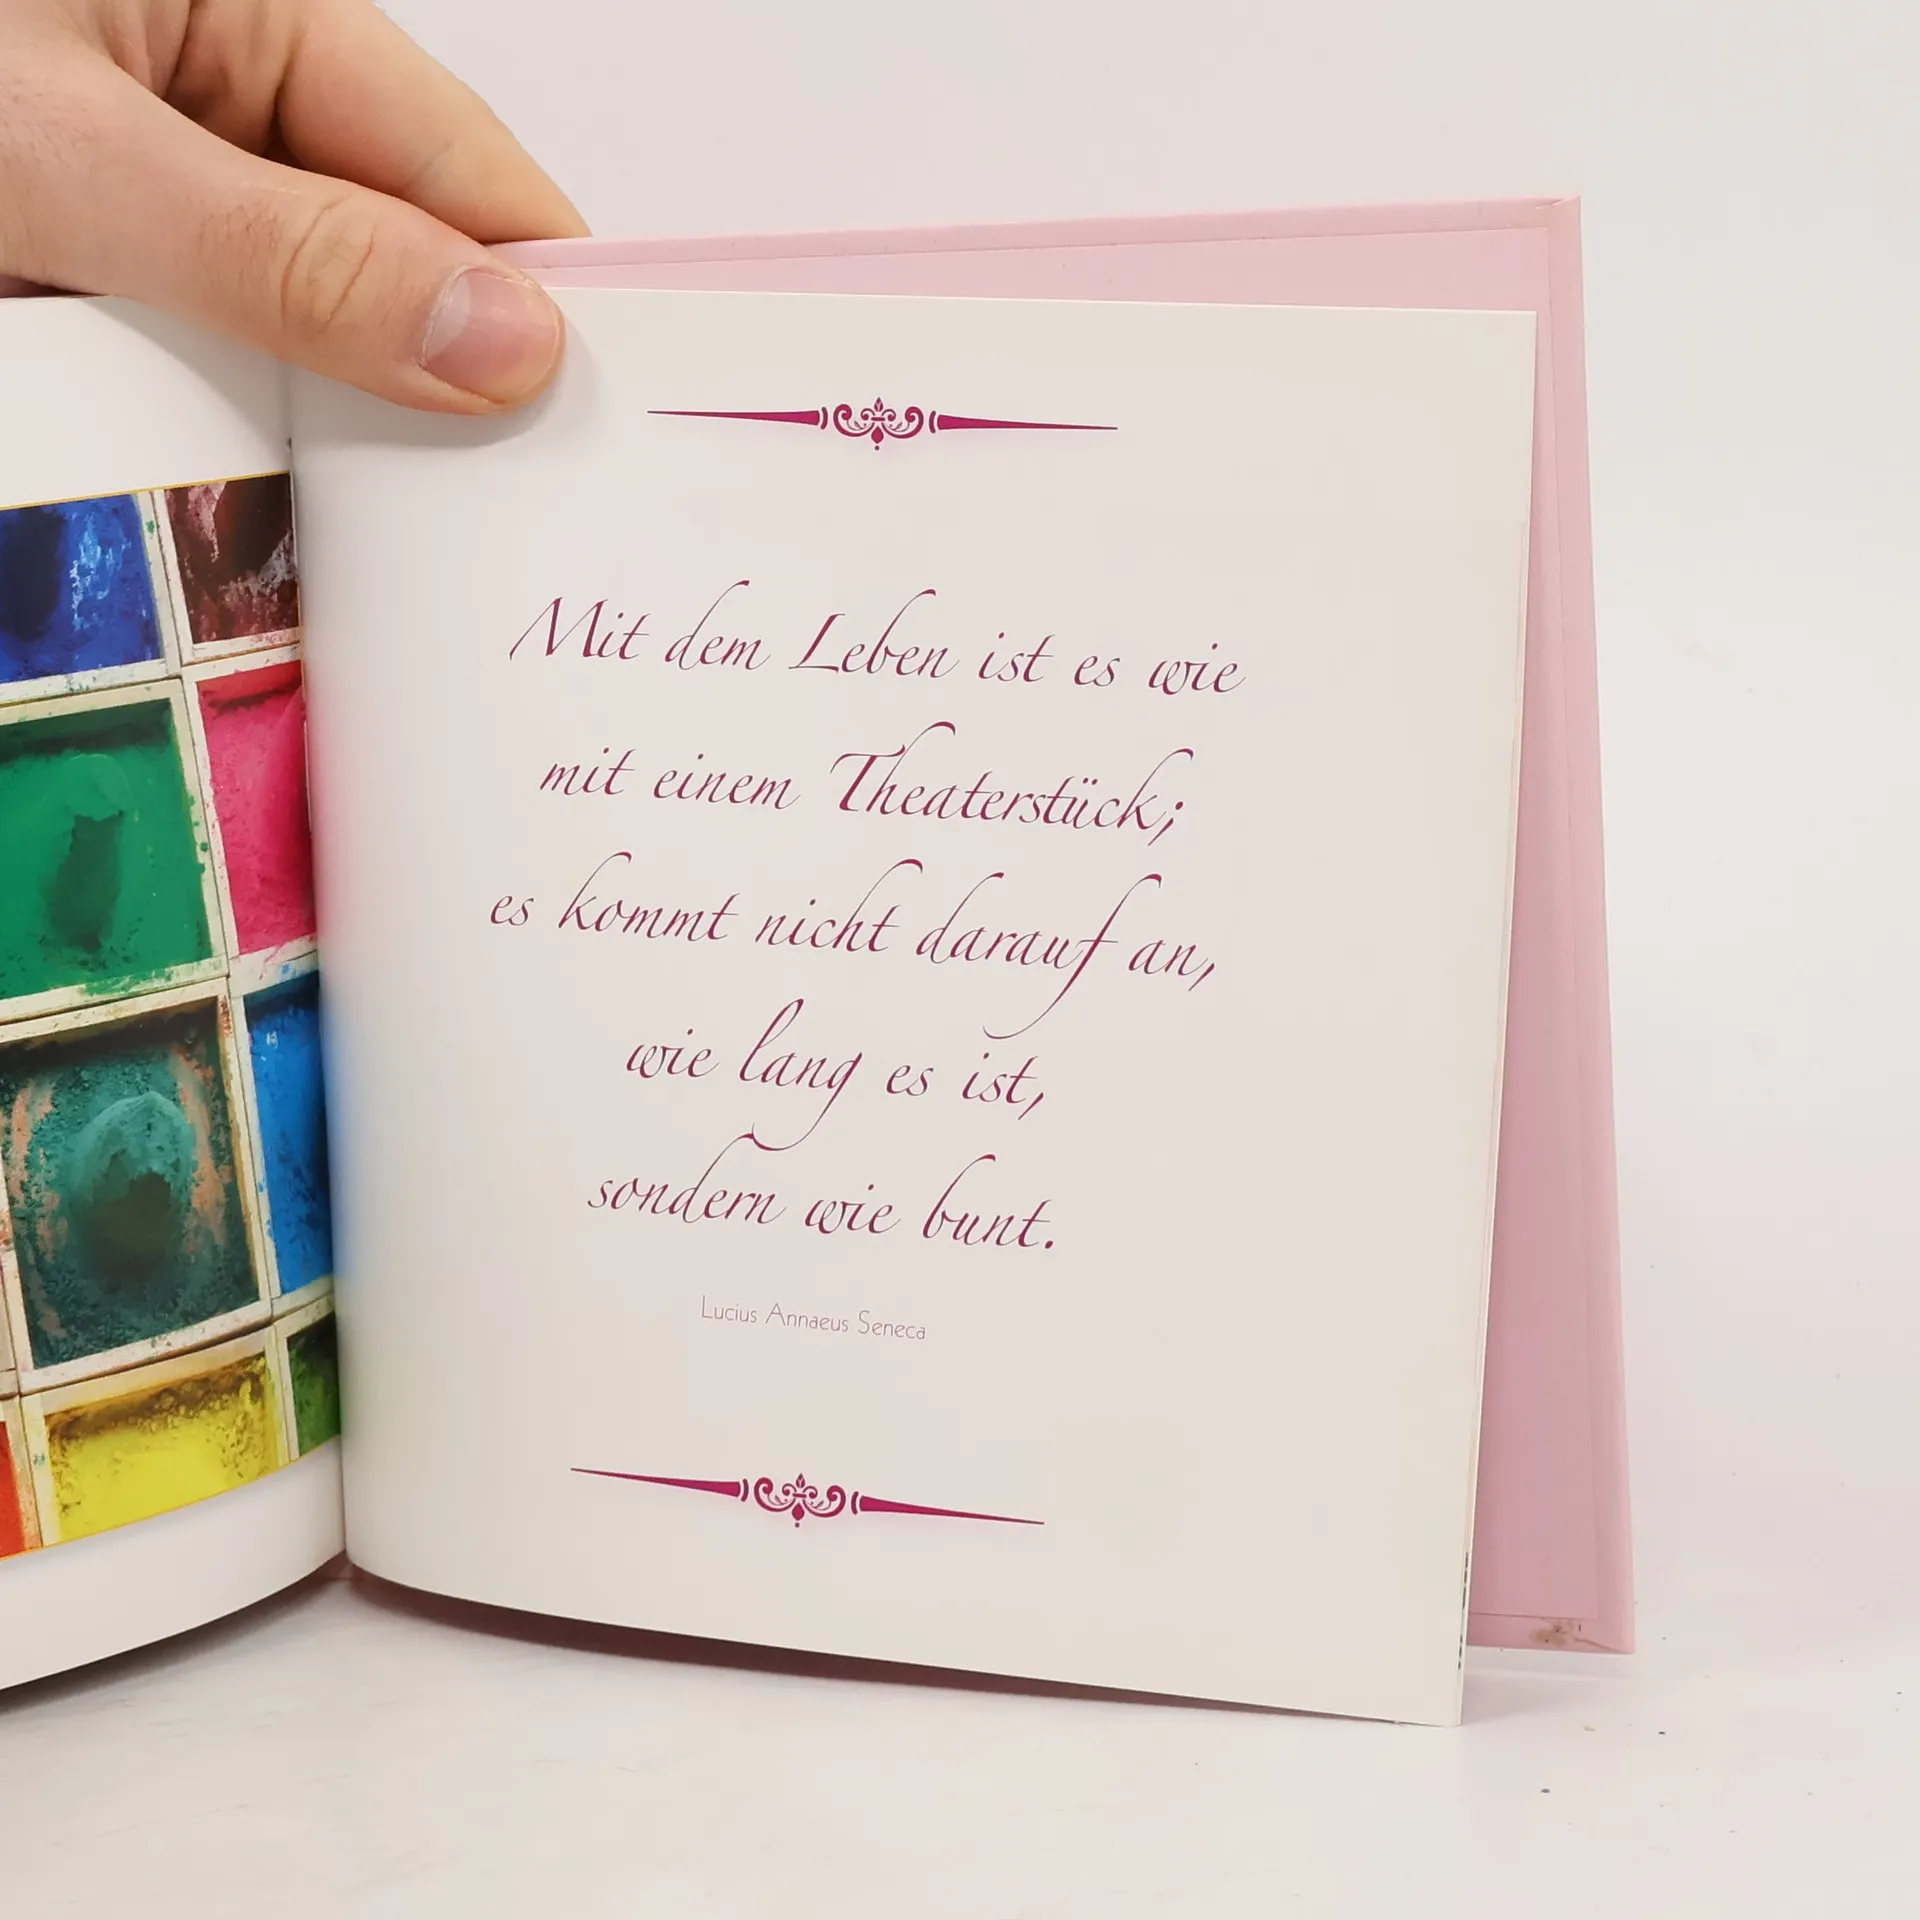 Mit dem Leben ist es wie
mit einem Theaterstück;
es kommt nicht darauf an,
wie lang es ist,
sondern wie bunt.
Lucius Annaeus Seneca